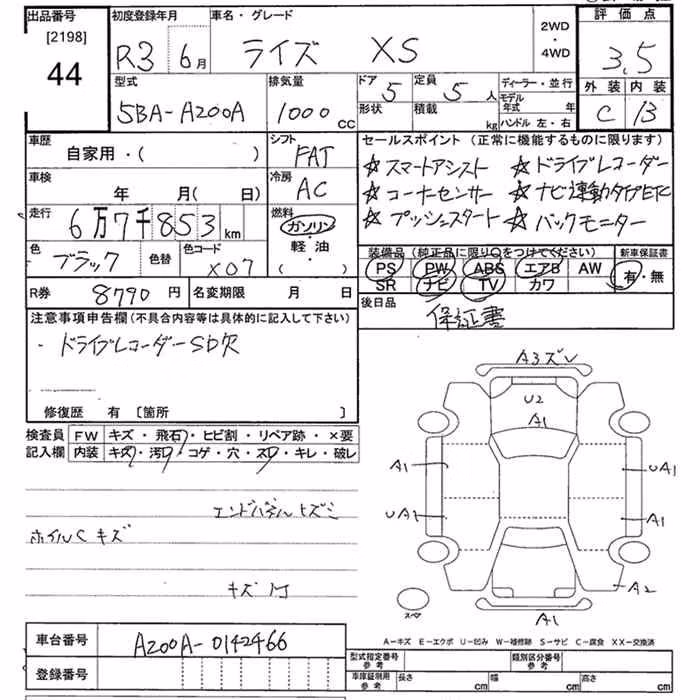 出品番号 初度登録年月 車名・グレード 評価点
[2198] 44 R3 6月 ライズ XS 2WD・4WD 3.5
型式 排気量 ドア 5 定員 5人 ディーラー・並行 外装 内装
5BA-A200A 1000cc 形状 積載 kg モデル年式 年 ハンドル 左・右 C B
車歴 シフト セールスポイント(正常に機能するものに限ります)
自家用・( ) FAT ☆スマートアシスト ☆ドライブレコーダー
車検 年 月( 日) 冷房 AC ☆コーナーセンサー ☆ナビ連動タイプETC
走行 6万7千853km 燃料 ガソリン・軽油・( ) ☆プッシュスタート ☆バックモニター
色 ブラック 色替 色コード X07 装備品(純正品に限り○をつけてください) 新車保証書
PS PW ABS エアB AW 有・無
SR ナビ TV カワ
R券 8790円 名変期限 月 日 後日品 保証書
注意事項申告欄(不具合内容等は具体的に記入して下さい)
・ドライブレコーダーSD欠
修復歴 有 [箇所 ]
検査員記入欄 FW キズ・飛石・ヒビ割・リペア跡・×要
内装 キズ・汚レ・コゲ・穴・スレ・キレ・破レ
エンドパネルヒズミ
ホイルCキズ
A3ズレ
U2
A1
A1 UA1
UA1 A1
A2
スペア
A1
A−キズ E−エクボ U−凹み W−補修跡 S−サビ C−腐食 XX−交換済
車台番号 A200A-0142466 型式指定番号 参考 類別区分番号 参考
登録番号 車庫証明用参考 長さ cm 幅 cm 高さ cm